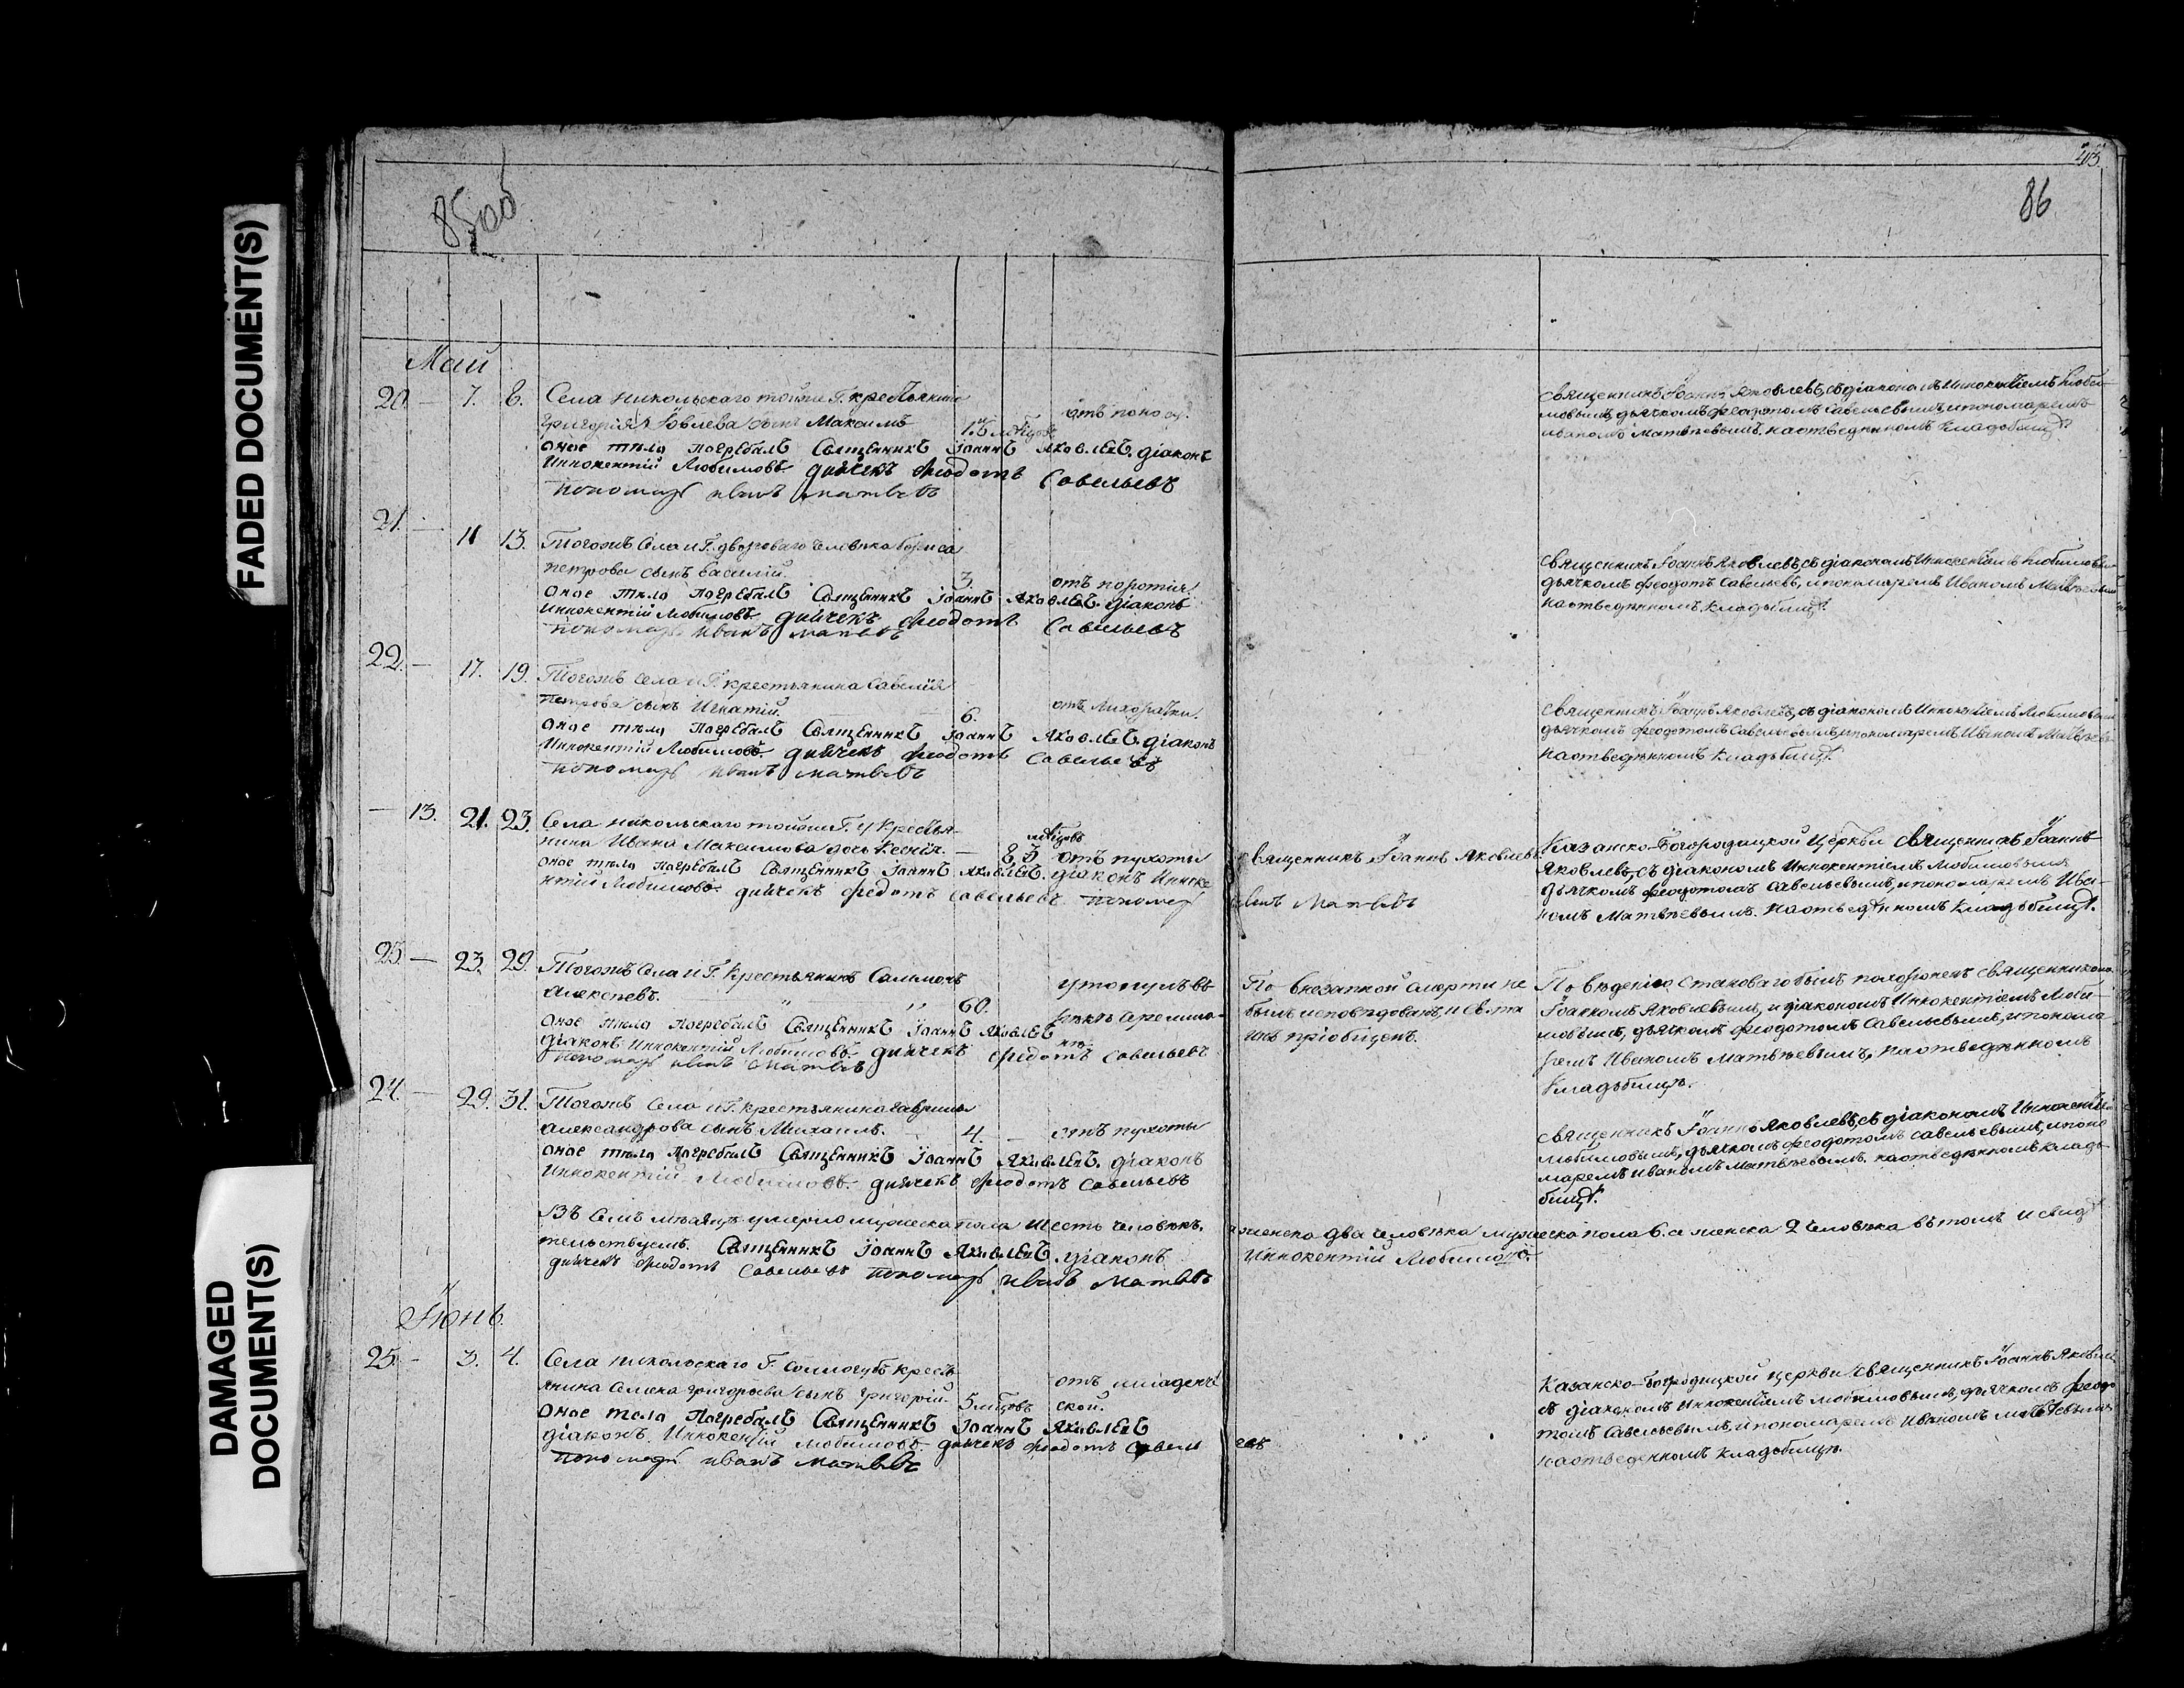 FADED DOCUMENT(S)
DAMAGED
DOCUMENT(S)
85 об
43.
86
Май
20 — 7. 8. Села Никольскаго тойже Г. крестьянина
Григорія Іовлева сынъ Максимъ
оное тѣло погребалъ Священникъ Іоаннъ Яковлевъ. діаконъ
Иннокентій Любимовъ дьячекъ Феодотъ Савельевъ
пономарь иванъ матвѣевъ
Священникъ Іоаннъ Яковлевъ, съ діакономъ Иннокентіемъ Люби-
мовымъ, дьячкомъ Феодотомъ Савельевымъ, и пономаремъ
иваномъ Матвѣевымъ. на отведенномъ кладбищѣ.
21. — 11 13. Тогожъ Села и Г. двороваго человѣка Бориса
петрова сынъ Василій. 3.
оное тѣло погребалъ Священникъ Іоаннъ Яковлевъ. діаконъ
Иннокентій Любимовъ. дьячекъ Феодотъ Савельевъ
пономарь иванъ матвѣевъ
Священникъ Іоаннъ Яковлевъ, съ діакономъ Иннокентіемъ Любимовымъ
дьячкомъ Феодотъ Савельевъ, и пономаремъ Иваномъ Матвѣевымъ
на отведенномъ кладбищѣ.
22. — 17. 19. Тогожъ села и Г. крестьянина Савелія
Петрова сынъ Игнатій. 6. отъ лихорадки.
оное тѣло погребалъ Священникъ Іоаннъ Яковлевъ. діаконъ
Иннокентій Любимовъ. дьячекъ Феодотъ Савельевъ
пономарь иванъ матвѣевъ
Священникъ Іоаннъ Яковлевъ, съ діакономъ Иннокентіемъ Любимовымъ
дьячкомъ Феодотомъ Савельевымъ, и пономаремъ Иваномъ Матвѣевы
на отведенномъ кладбищѣ.
— 13. 21. 23. Села Никольскаго тойже Г. Крестья-
нина Ивана Максимова дочь Ксенія. — отъ пухоты
оное тѣло погребалъ Священникъ Іоаннъ Яковлевъ. діаконъ Инноке
нтій Любимовъ. дьячекъ Федотъ Савельевъ пономарь
Священникъ Іоаннъ Яковлевъ
иванъ Матвѣевъ
Казанско-Богородицкой Церкви Священникъ Іоаннъ
Яковлевъ, съ діакономъ Иннокентіемъ Любимовымъ
дьячкомъ Феодотомъ Савельевымъ, и пономаремъ Ива-
номъ Матвѣевымъ. на отведенномъ кладбищѣ.
23. — 23. 29. Тогожъ Села и Г. Крестьянинъ Саламонъ
Алексѣевъ. " " 60. утонулъ въ
оное тѣло погребалъ Священникъ Іоаннъ Яковлевъ
діаконъ Иннокентій Любимовъ. дьячекъ Федотъ Савельевъ
пономарь иванъ матвѣевъ
По внезапной смерти не
былъ исповѣдованъ, и Св. та
инъ пріобщенъ.
По вѣденію Становаго былъ похороненъ священникомъ
Іоанномъ Яковлевымъ, и діакономъ Иннокентіемъ Люби-
мовымъ, дьячкомъ Феодотомъ Савельевымъ, и понома
ремъ Иваномъ Матвѣевымъ, на отведенномъ
кладбищѣ.
24. — 29. 31. Тогожъ Села и Г. крестьянина Гаврила
Александрова сынъ Михаилъ. 4. — отъ пухоты
оное тѣло погребалъ Священникъ Іоаннъ Яковлевъ. діаконъ
Иннокентій Любимовъ. дьячекъ Феодотъ Савельевъ
Священникъ Іоаннъ Яковлевъ, съ діакономъ Иннокентіем
Любимовымъ, дьячкомъ Феодотомъ Савельевымъ, и поно
маремъ Иваномъ Матвѣевымъ. на отведенномъ клад-
бищѣ.
Въ Семъ мѣсяцѣ умерло мужеска пола шесть человѣкъ. женска два человѣка мужеска пола 6. а женска 2 человѣка въ томъ и свидѣ
тельствуемъ. Священникъ Іоаннъ Яковлевъ. діаконъ Иннокентій Любимовъ.
дьячекъ Феодотъ Савельевъ пономарь иванъ Матвѣевъ
Іюнь.
25. — 3. 4. Села Никольскаго Г. Соллогубъ кресть
янина Семена Григорьева сынъ Григорій. 5 мѣсяцовъ отъ младенче
ской.
оное тело погребалъ Священникъ Іоаннъ Яковлевъ
діаконъ. Иннокентій Любимовъ. дьячекъ Феодотъ Савель евъ
пономарь иванъ Матвѣевъ
Казанско-Богородицкой церкви Священникъ Іоаннъ Яковлев
съ діакономъ Иннокентіемъ Любимовымъ, дьячкомъ Феодо
томъ Савельевымъ, и пономаремъ Иваномъ Матвѣевымъ
на отведенномъ кладбищѣ.